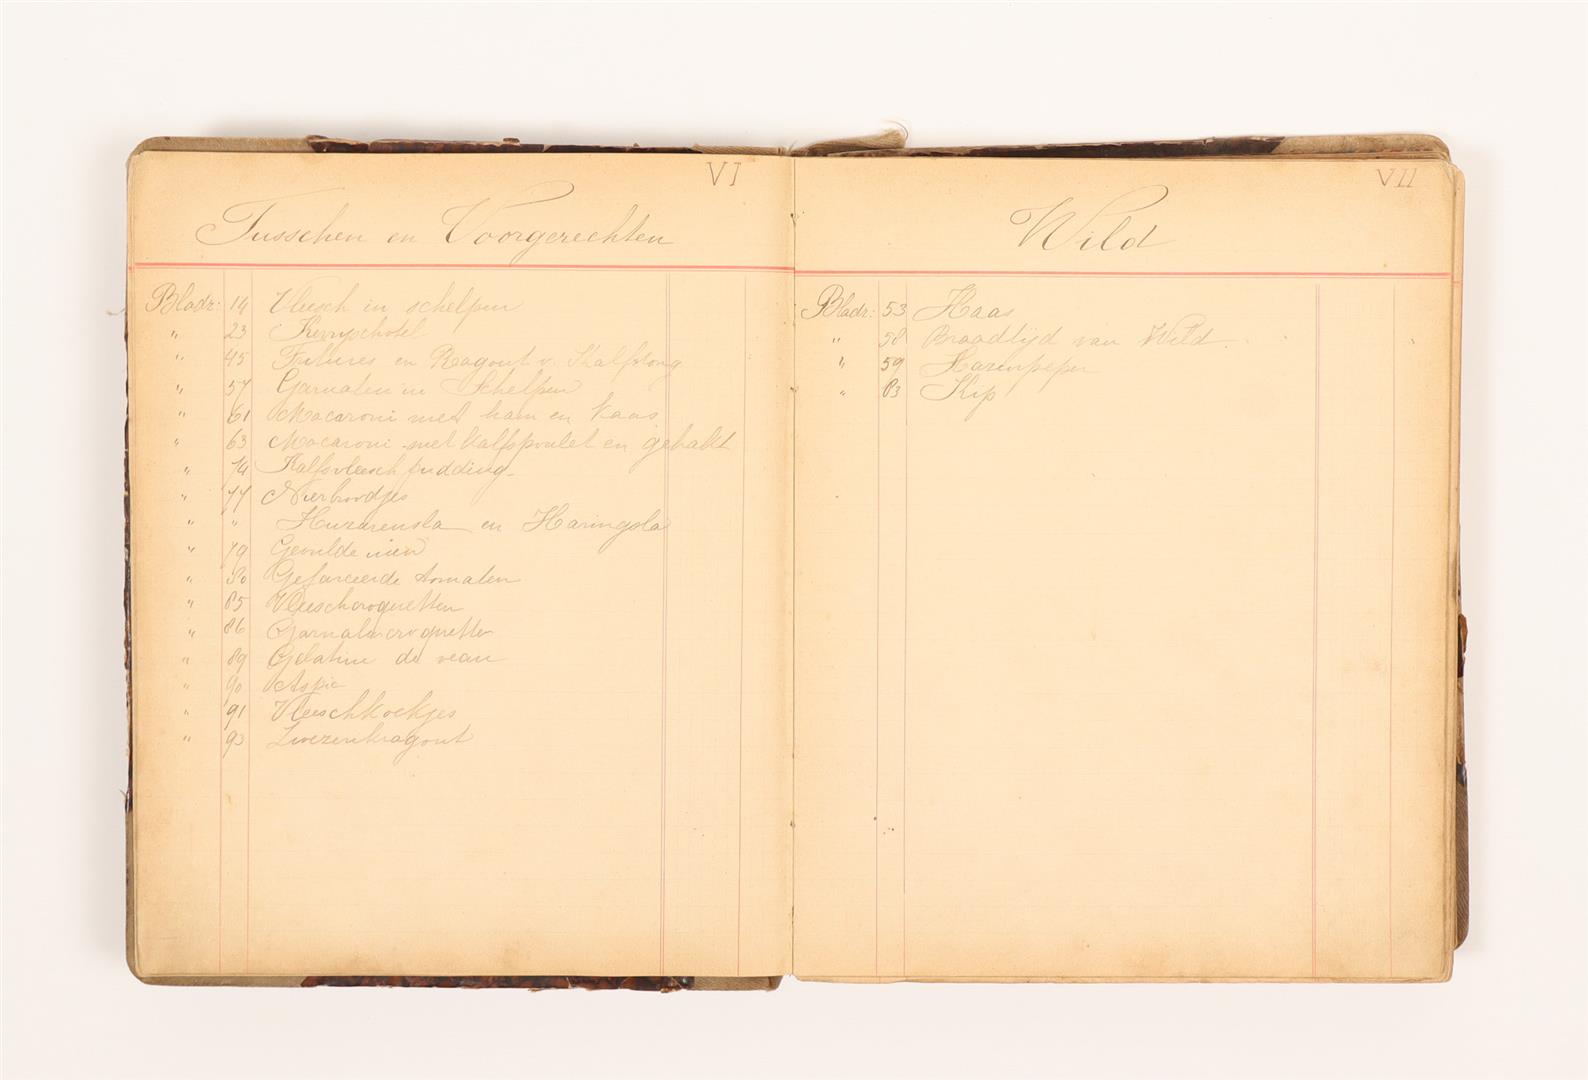 VI
Tusschen en Voorgerechten
Bladz: 14 Vleesch in schelpen
" 23 Kerryschotel
" 45 Fritures en Ragout v. Kalfstong
" 57 Garnalen in Schelpen
" 61 Macaroni met ham en kaas
" 63 Macaroni met kalfspoulet en gehakt
" 74 Kalfsvleesch pudding
" 77 Nierbroodjes
" " Huzarensla en Haringsla
" 79 Gevulde
" 80 Gefarceerde tomaten
" 85 Vleeschcroquetten
" 86 Garnalencroquetten
" 89 Gelatine de veau
" 90 Aspic
" 91 Vleeschkoekjes
" 93 Zwezerikragout
VII
Wild
Bladz: 53 Haas
" 58 Braadtijd van Wild
" 59 Hazenpeper
" 83 Kip